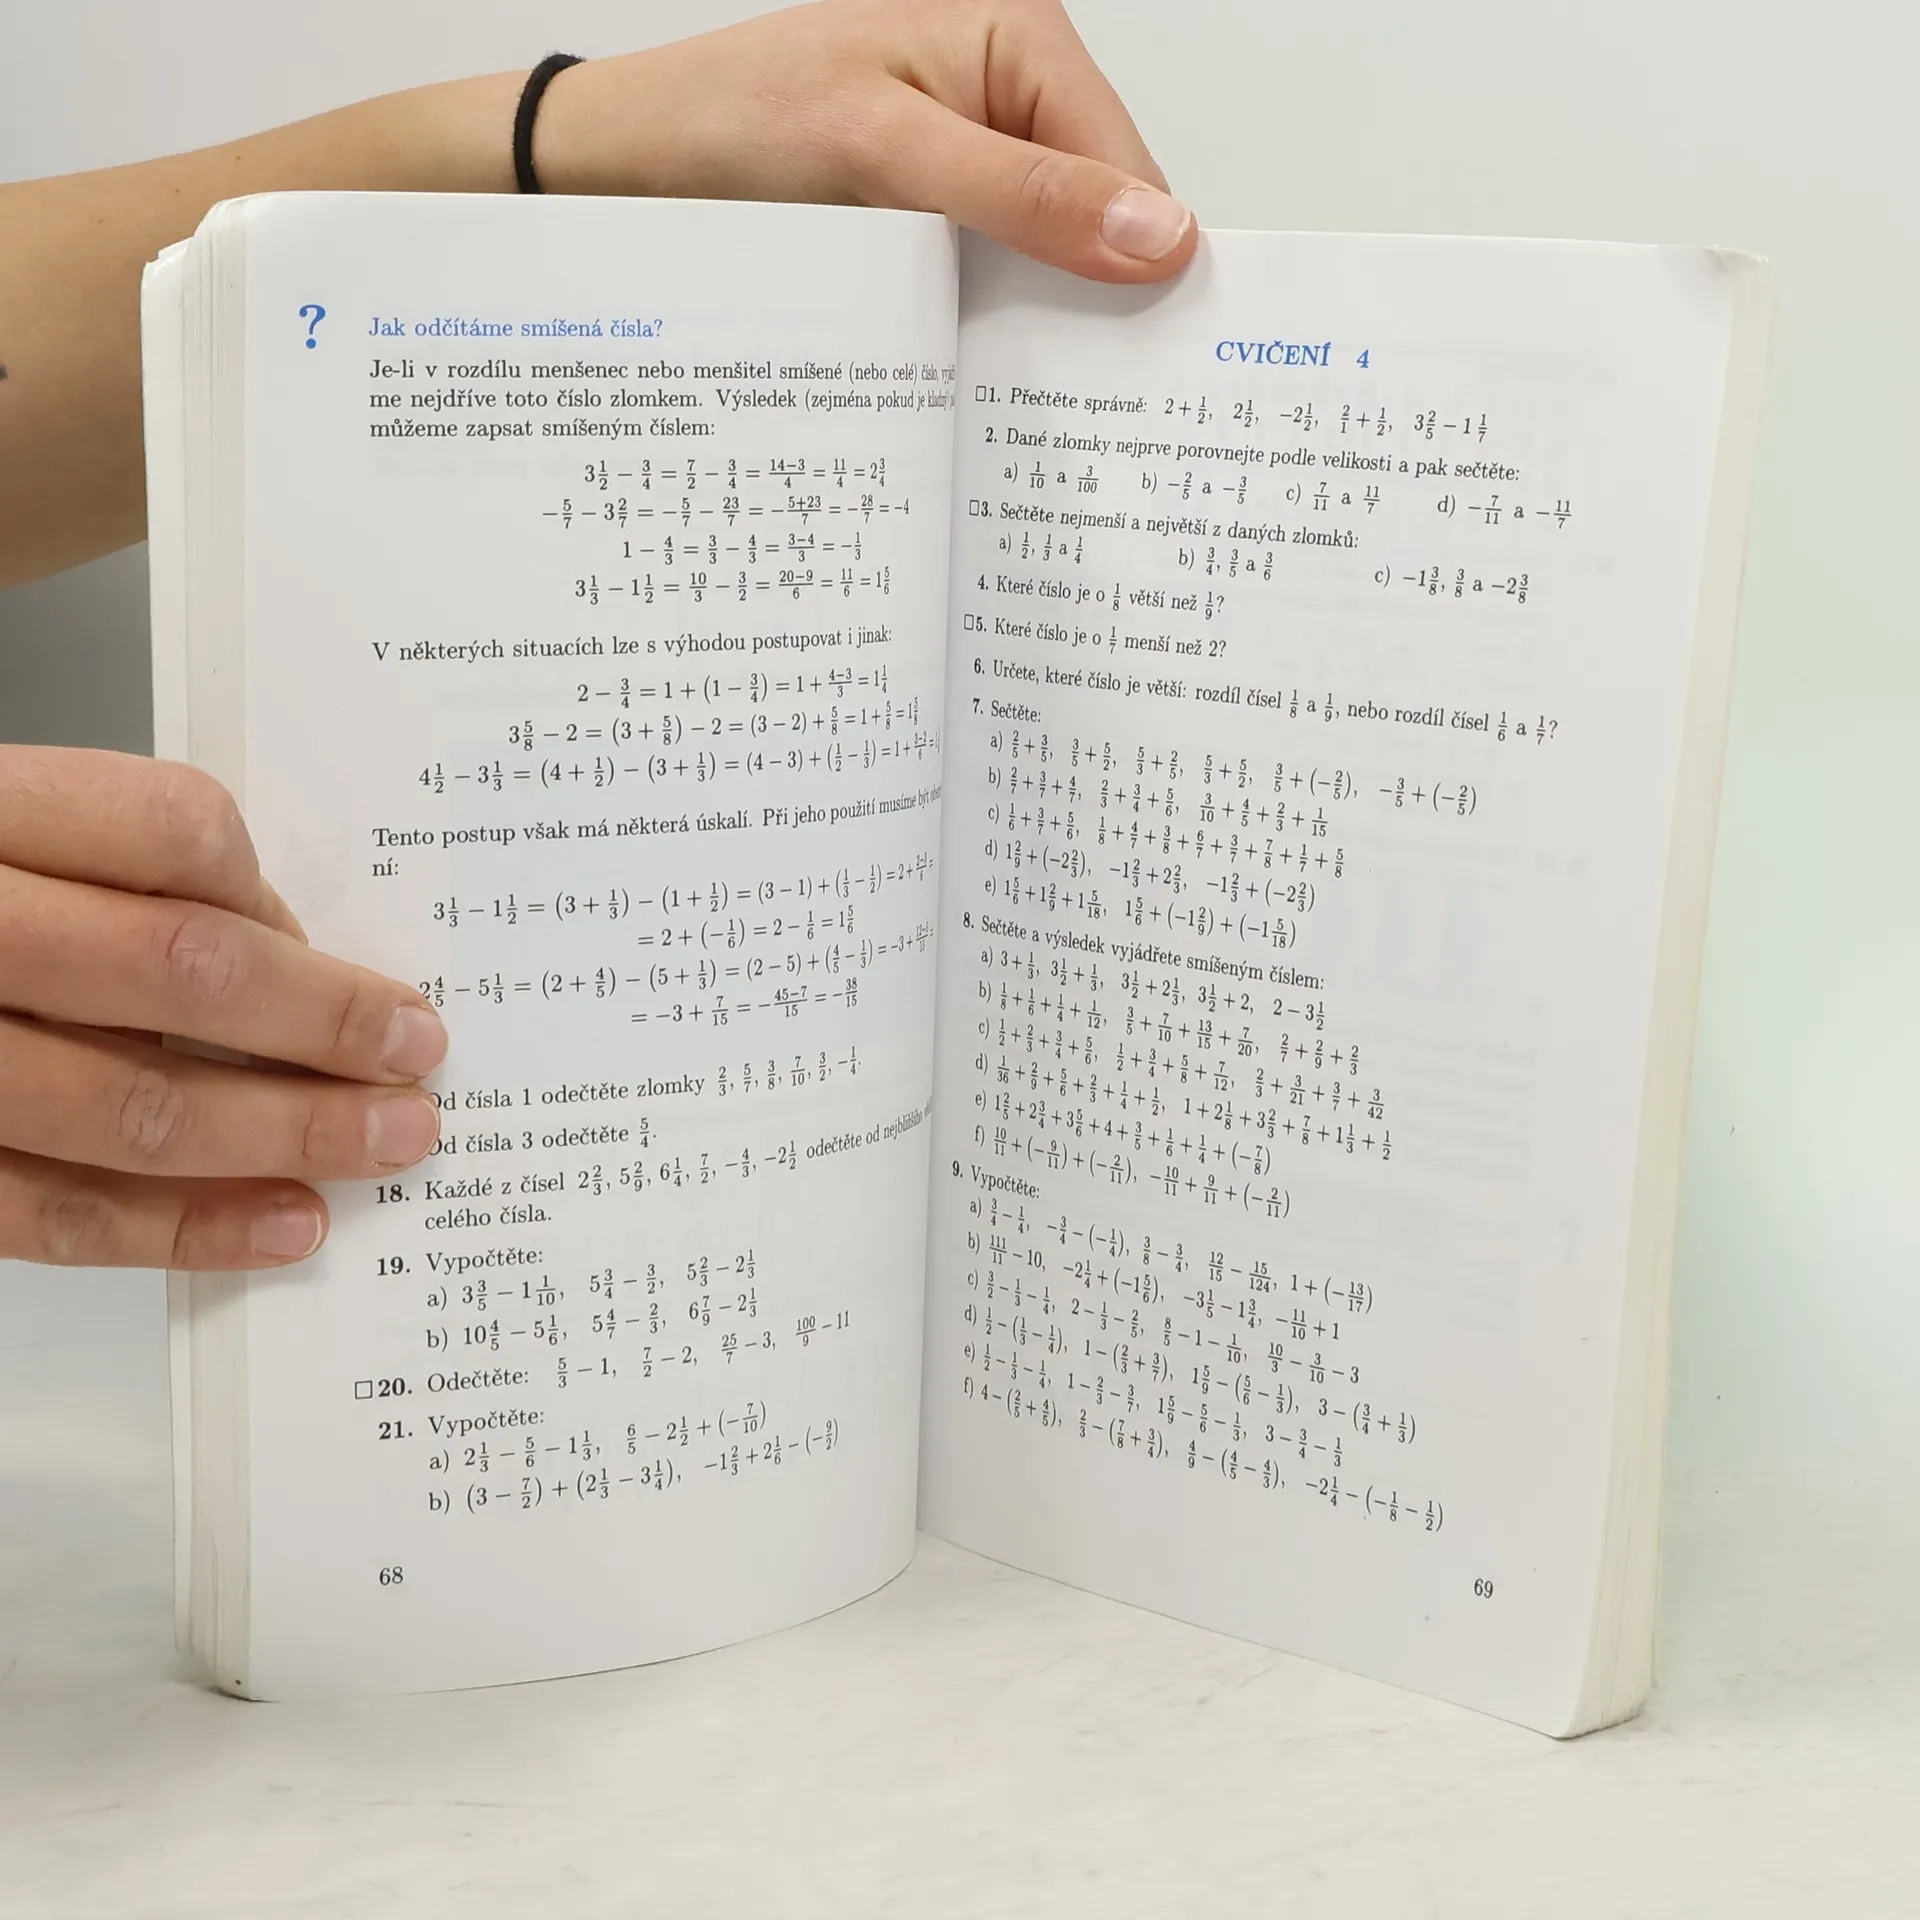 ?
Jak odčítáme smíšená čísla?
Je-li v rozdílu menšenec nebo menšitel smíšené (nebo celé) číslo,
me nejdříve toto číslo zlomkem. Výsledek (zejména pokud je kladný)
můžeme zapsat smíšeným číslem:
3 1/2 − 3/4 = 7/2 − 3/4 = 14−3/4 = 11/4 = 2 3/4
−5/7 − 3 2/7 = −5/7 − 23/7 = −5+23/7 = −28/7 = −4
1 − 4/3 = 3/3 − 4/3 = 3−4/3 = −1/3
3 1/3 − 1 1/2 = 10/3 − 3/2 = 20−9/6 = 11/6 = 1 5/6
V některých situacích lze s výhodou postupovat i jinak:
2 − 3/4 = 1 + (1 − 3/4) = 1 + 4−3/3 = 1 1/4
3 5/8 − 2 = (3 + 5/8) − 2 = (3 − 2) + 5/8 = 1 + 5/8 = 1 5/8
4 1/2 − 3 1/3 = (4 + 1/2) − (3 + 1/3) = (4 − 3) + (1/2 − 1/3) = 1 + 3−2/6 =
Tento postup však má některá úskalí. Při jeho použití musíme být
ní:
3 1/3 − 1 1/2 = (3 + 1/3) − (1 + 1/2) = (3 − 1) + (1/3 − 1/2) = 2 + 2−3/6 =
= 2 + (−1/6) = 2 − 1/6 = 1 5/6
2 4/5 − 5 1/3 = (2 + 4/5) − (5 + 1/3) = (2 − 5) + (4/5 − 1/3) = −3 + 12−5/15 =
= −3 + 7/15 = −45−7/15 = −38/15
Od čísla 1 odečtěte zlomky 2/3, 5/7, 3/8, 7/10, 3/2, −1/4.
Od čísla 3 odečtěte 5/4.
18. Každé z čísel 2 2/3, 5 2/9, 6 1/4, 7/2, −4/3, −2 1/2 odečtěte od nejbližšího
celého čísla.
19. Vypočtěte:
a) 3 3/5 − 1 1/10, 5 3/4 − 3/2, 5 2/3 − 2 1/3
b) 10 4/5 − 5 1/6, 5 4/7 − 2/3, 6 7/9 − 2 1/3
□20. Odečtěte: 5/3 − 1, 7/2 − 2, 25/7 − 3, 100/9 − 11
21. Vypočtěte:
a) 2 1/3 − 5/6 − 1 1/3, 6/5 − 2 1/2 + (−7/10)
b) (3 − 7/2) + (2 1/3 − 3 1/4), −1 2/3 + 2 1/6 − (−9/2)
68
CVIČENÍ 4
□1. Přečtěte správně: 2 + 1/2, 2 1/2, −2 1/2, 2/1 + 1/2, 3 2/5 − 1 1/7
2. Dané zlomky nejprve porovnejte podle velikosti a pak sečtěte:
a) 1/10 a 3/100 b) −2/5 a −3/5 c) 7/11 a 11/7 d) −7/11 a −11/7
□3. Sečtěte nejmenší a největší z daných zlomků:
a) 1/2, 1/3 a 1/4 b) 3/4, 3/5 a 3/6 c) −1 3/8, 3/8 a −2 3/8
4. Které číslo je o 1/8 větší než 1/9?
□5. Které číslo je o 1/7 menší než 2?
6. Určete, které číslo je větší: rozdíl čísel 1/8 a 1/9, nebo rozdíl čísel 1/6 a 1/7?
7. Sečtěte:
a) 2/5 + 3/5, 3/5 + 5/2, 5/3 + 2/5, 5/3 + 5/2, 3/5 + (−2/5), −3/5 + (−2/5)
b) 2/7 + 3/7 + 4/7, 2/3 + 3/4 + 5/6, 3/10 + 4/5 + 2/3 + 1/15
c) 1/6 + 3/7 + 5/6, 1/8 + 4/7 + 3/8 + 6/7 + 3/7 + 7/8 + 1/7 + 5/8
d) 1 2/9 + (−2 2/3), −1 2/3 + 2 2/3, −1 2/3 + (−2 2/3)
e) 1 5/6 + 1 2/9 + 1 5/18, 1 5/6 + (−1 2/9) + (−1 5/18)
8. Sečtěte a výsledek vyjádřete smíšeným číslem:
a) 3 + 1/3, 3 1/2 + 1/3, 3 1/2 + 2 1/3, 3 1/2 + 2, 2 − 3 1/2
b) 1/8 + 1/6 + 1/4 + 1/12, 3/5 + 7/10 + 13/15 + 7/20, 2/7 + 2/9 + 2/3
c) 1/2 + 2/3 + 3/4 + 5/6, 1/2 + 3/4 + 5/8 + 7/12, 2/3 + 3/21 + 3/7 + 3/42
d) 1/36 + 2/9 + 5/6 + 2/3 + 1/4 + 1/2, 1 + 2 1/8 + 3 2/3 + 7/8 + 1 1/3 + 1/2
e) 1 2/5 + 2 3/4 + 3 5/6 + 4 + 3/5 + 1/6 + 1/4 + (−7/8)
f) 10/11 + (−9/11) + (−2/11), −10/11 + 9/11 + (−2/11)
9. Vypočtěte:
a) 3/4 − 1/4, −3/4 − (−1/4), 3/8 − 3/4, 12/15 − 15/124, 1 + (−13/17)
b) 111/11 − 10, −2 1/4 + (−1 5/6), −3 1/5 − 1 3/4, −11/10 + 1
c) 3/2 − 1/3 − 1/4, 2 − 1/3 − 2/5, 8/5 − 1 − 1/10, 10/3 − 3/10 − 3
d) 1/2 − (1/3 − 1/4), 1 − (2/3 + 3/7), 1 5/9 − (5/6 − 1/3), 3 − (3/4 + 1/3)
e) 1/2 − 1/3 − 1/4, 1 − 2/3 − 3/7, 1 5/9 − 5/6 − 1/3, 3 − 3/4 − 1/3
f) 4 − (2/5 + 4/5), 2/3 − (7/8 + 3/4), 4/9 − (4/5 − 4/3), −2 1/4 − (−1/8 − 1/2)
69